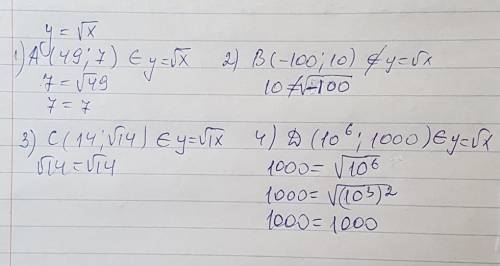 y = √x
1) A (49; 7) ∈ y = √x
7 = √49
7 = 7
2) B (-100; 10) ∉ y = √x
10 ≠ √-100
3) C (14; √14) ∈ y = √x
√14 = √14
4) D (10⁶; 1000) ∈ y = √x
1000 = √10⁶
1000 = √(10³)²
1000 = 1000